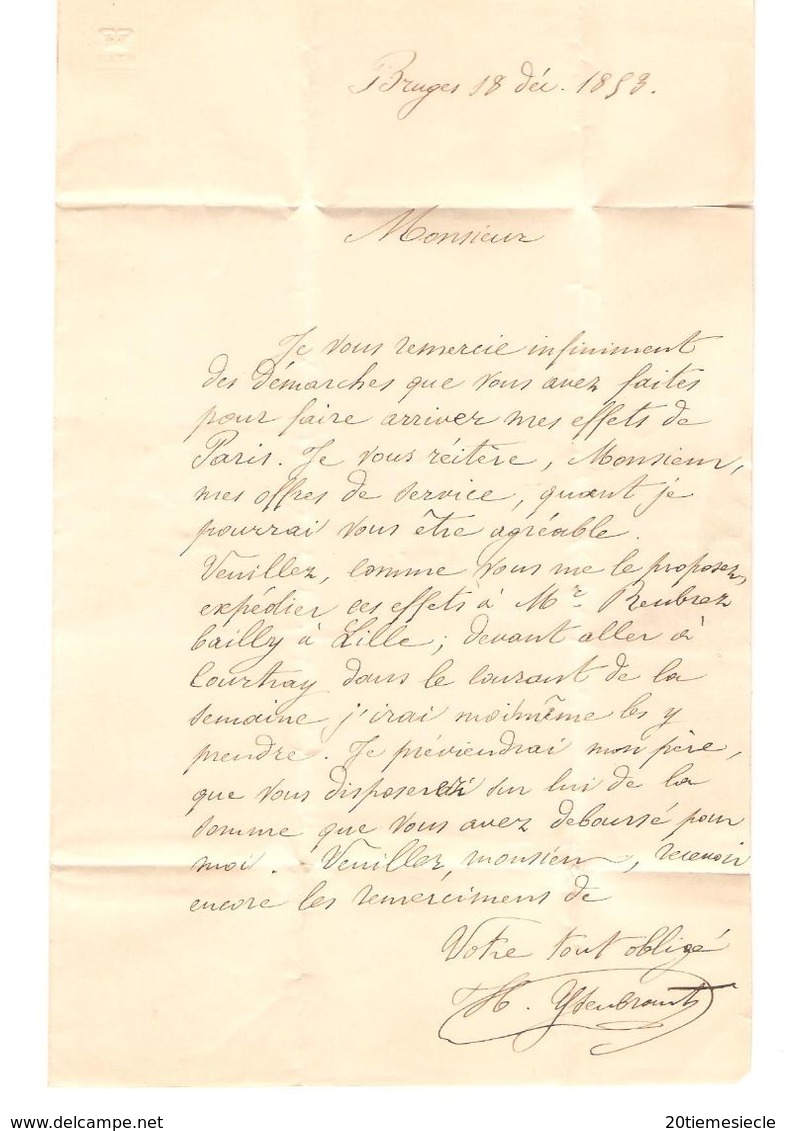 Bruges 18 déc. 1853.
Monsieur
Je vous remercie infiniment
des démarches que vous avez faites
pour faire arriver mes effets de
Paris. Je vous réitère, Monsieur,
mes offres de service, quant je
pourrai vous être agréable.
Veuillez, comme vous me le proposez,
expédier ces effets à Mr. Reubrez
bailly à Lille; devant aller à
Courtray dans le courant de la
semaine j'irai moi même les y
prendre. Je préviendrai mon père,
que vous disposerez sur lui de la
somme que vous avez deboursé pour
moi. Veuillez, monsieur, recevoir
encore les remerciments de
Votre tout obligé
H. Ysenbrant
20tiemesiecle